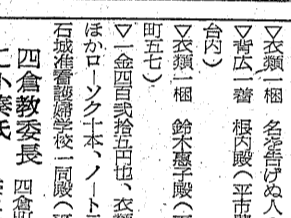 ▽衣類一梱　名を告げぬ人
▽背広一着　根内殿（平市
台内）
▽衣類一梱　鈴木惠子殿（
町五七）
▽一金四百弐拾五円也、衣類
ほかローソク十本、ノート
石城准看護婦学校一同殿（
四倉教委長　四倉